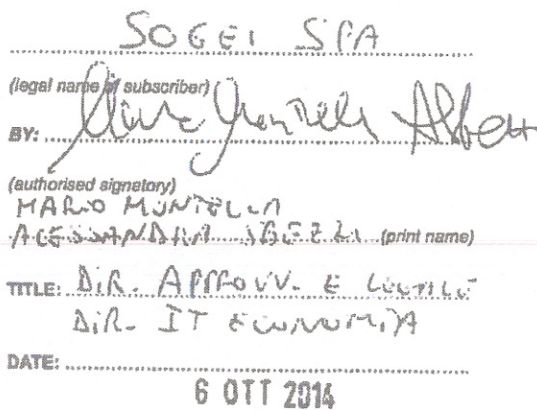 SOGEI SPA
(legal name of subscriber)
BY:
(authorised signatory)
MARIO MONTELLA
ALESSANDRA (print name)
TITLE: DIR. APPROVV. E LEGALE
DIR. IT ECONOMIA
DATE:
6 OTT 2014